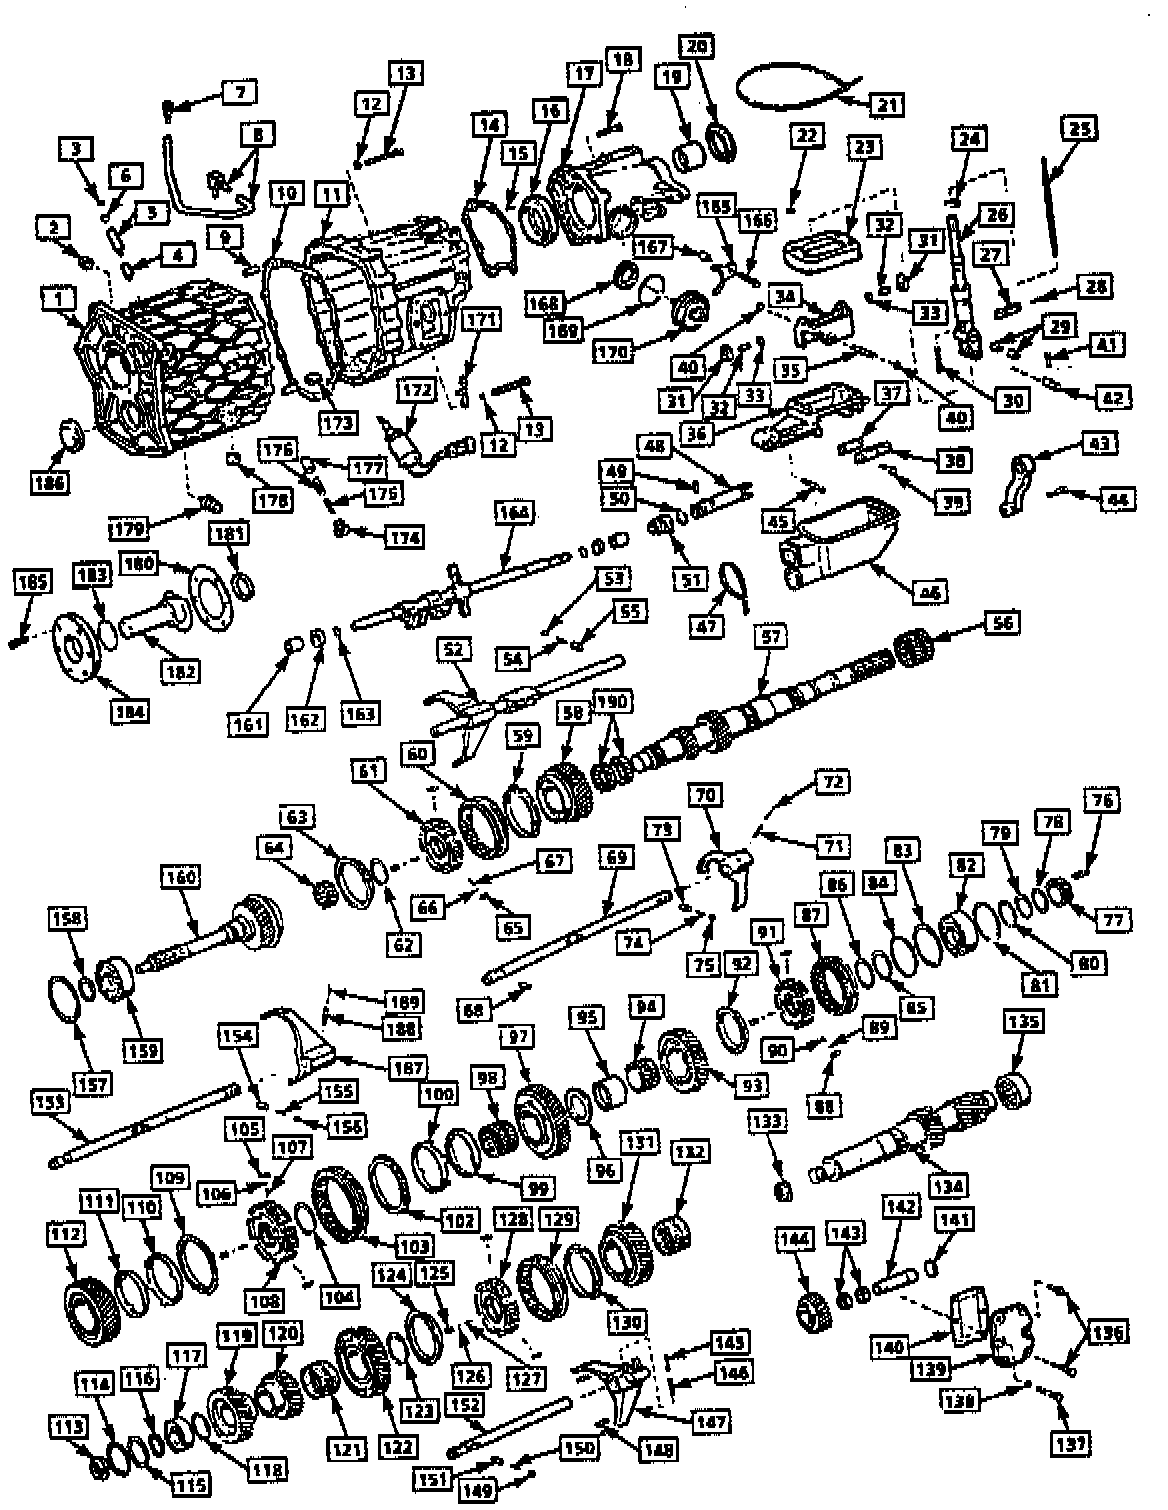 20
18
13
17
19
7
12
16
21
14
8
22
24
25
3
15
23
6
10
11
165
5
26
166
32
31
2
9
4
167
27
34
28
1
168
33
171
29
169
170
41
40
35
172
37
30
31
32
33
42
40
13
36
173
12
48
43
176
38
177
49
186
175
39
44
178
50
164
45
179
181
174
180
183
51
46
185
53
55
47
56
57
52
182
54
190
184
161
162
163
58
59
60
61
72
70
76
63
73
78
79
71
64
67
69
83
82
160
86
84
66
87
158
77
65
91
62
74
75
92
80
81
68
189
85
94
95
135
154
188
97
89
159
90
187
157
98
93
153
155
100
88
156
105
133
131
132
107
96
109
106
99
134
111
110
102
128
129
142
141
112
103
144
143
124
125
104
108
130
119
120
136
145
140
117
139
116
126
127
146
114
138
123
152
113
147
122
121
137
150
148
118
151
115
149